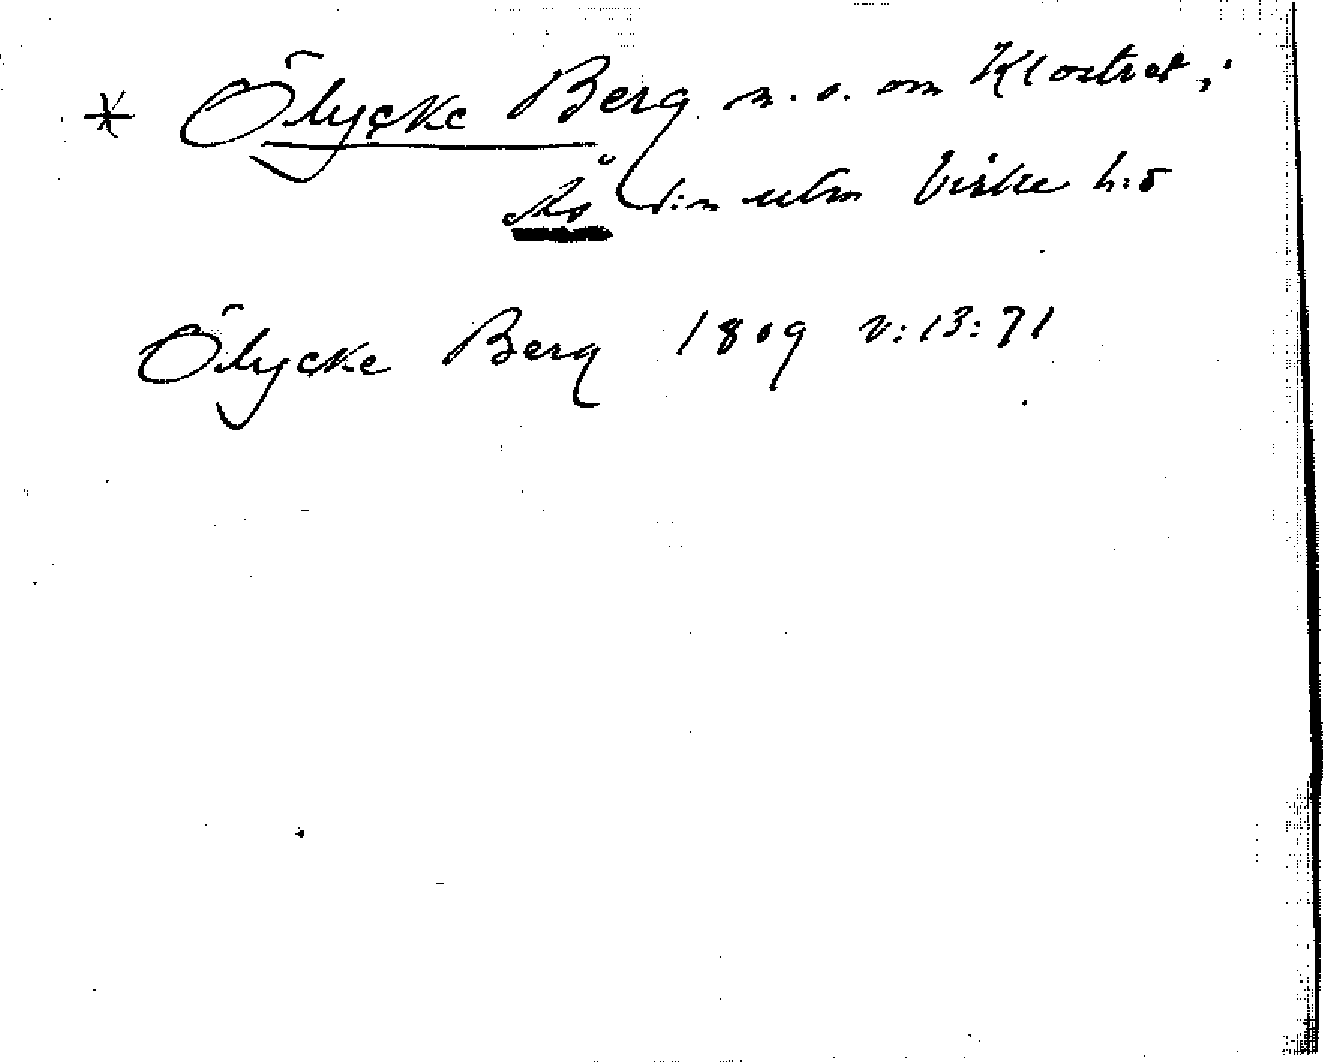 * Ölycke Berg n. o. om Klostret, i
Ås s:n utm Viske h:d
Ölycke Berg 1809 V:13:71